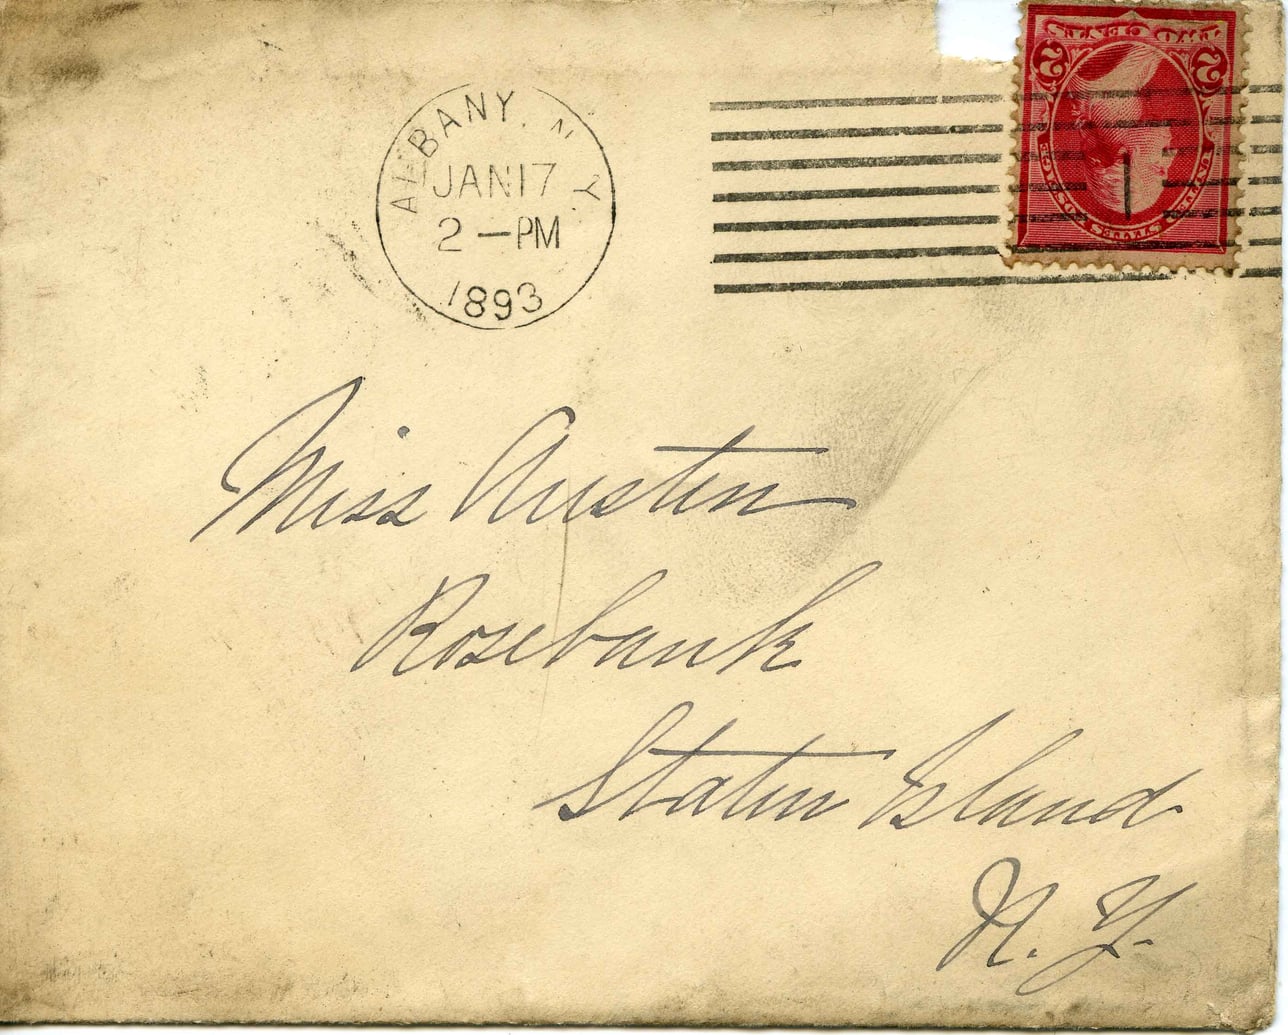 ALBANY, N.Y.
JAN 17
2 — PM
1893
UNITED STATES POSTAGE
2 2
TWO CENTS
1
Miss Austen
Rosebank
Staten Island
N. Y.